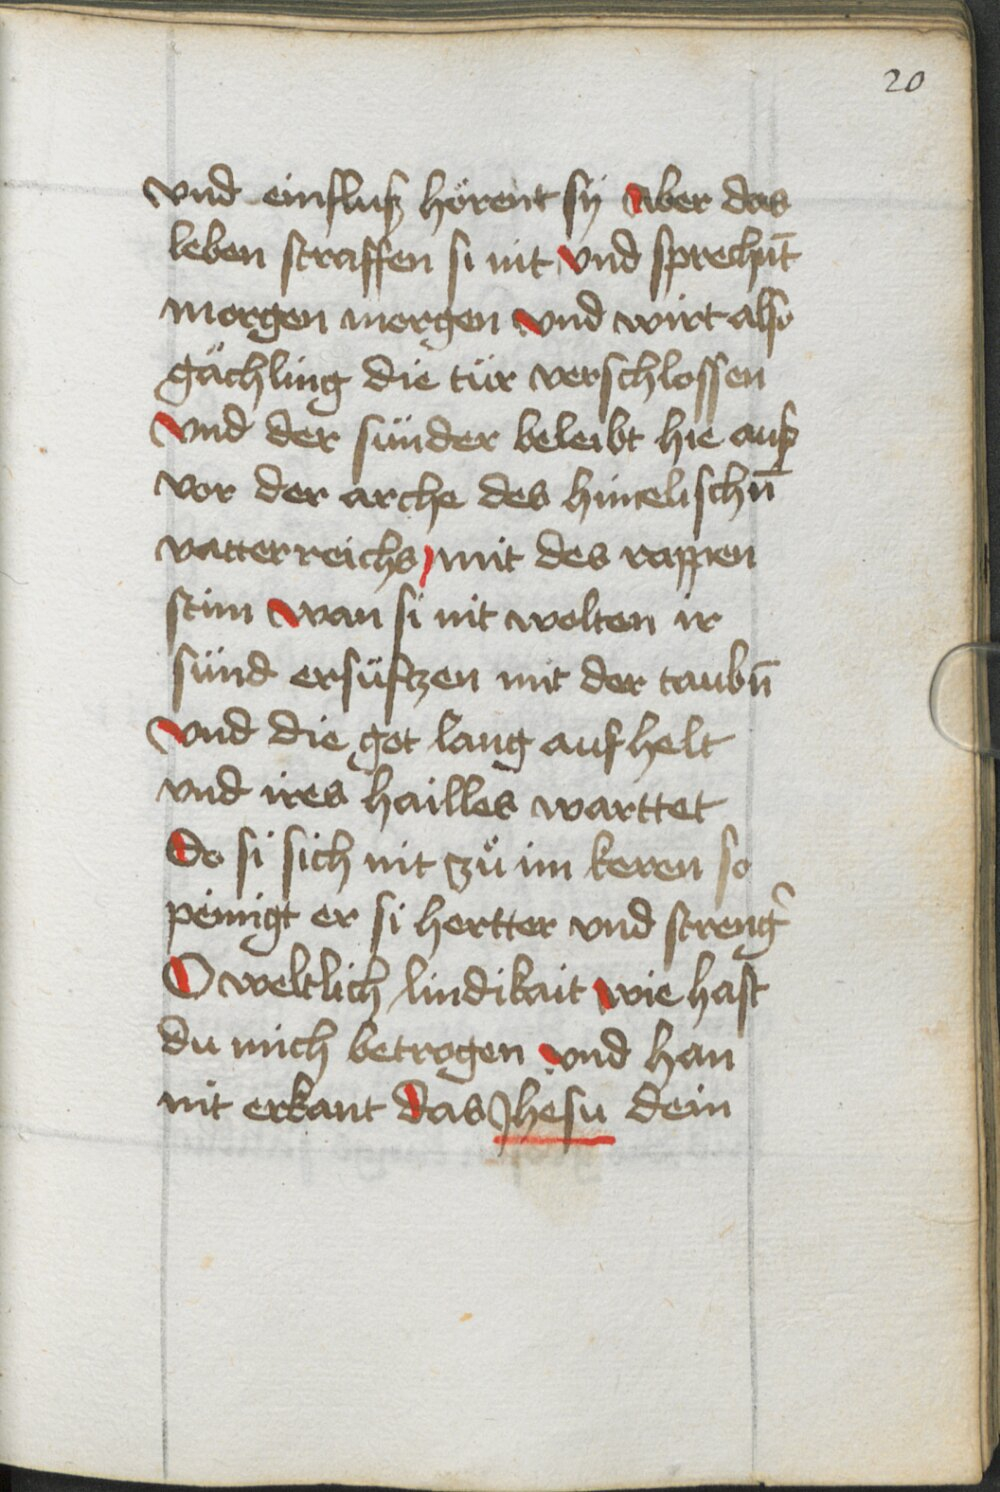 20
vnd einfluß hörent sÿ Aber das
leben straffen si nit Vnd sprechnt̄
morgen morgen Vnd wirt also
gächling die tür verschlossen
Vnd der sünder beleibt hie auß
vor der arche des himelischn̄
vatterreichs mit des rappen
stim Wan si nit wolten ir
sünd ersüftzen mit der taubn̄
Vnd die got lang aufhelt
vnd ires hailles warttet
Do si sich nit zů im keren so
peinigt er si hertter vnd streng̉
O weltlich lindikait Wie hast
du mich betrogen Vnd han
nit erkant Das Jhesu dein